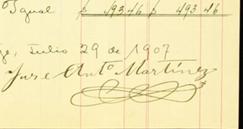 Igual $ 493 46 $ 493 46
Julio 29 de 1907
José Anto Martínez